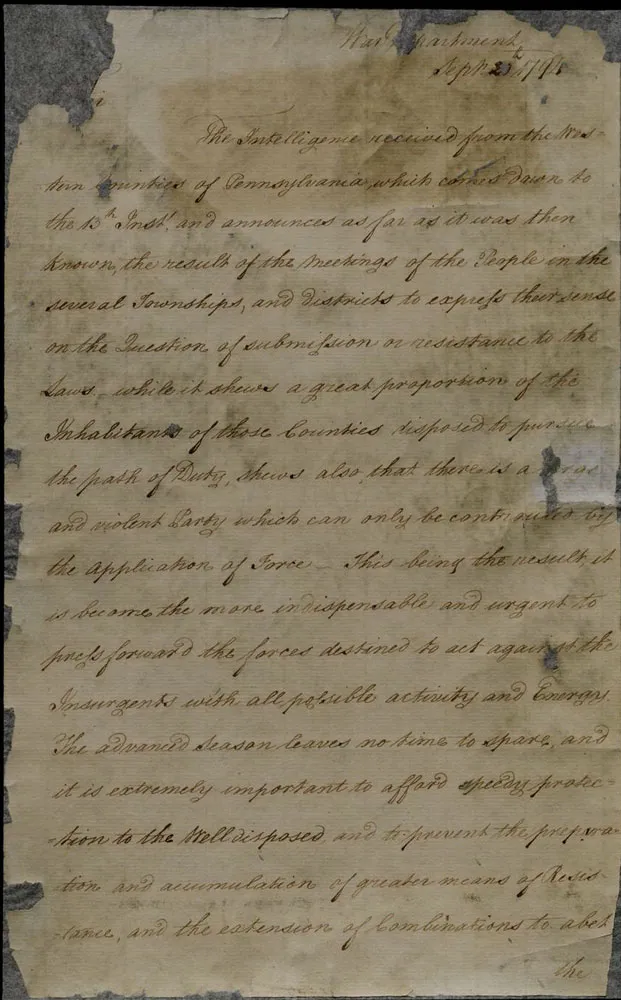 War Department
Sept 1794
The Intelligence received from the Wes=
tern Counties of Pennsylvania, which comes down to
the 13th Inst. and announces as far as it was then
Known, the result of the Meetings of the People in the
several Townships, and districts to express their sense
on the Question of submission or resistance to the
Laws, while it shews a great proportion of the
Inhabitants of those Counties disposed to pursue
the path of Duty, shews also, that there is a large
and violent Party which can only be controuled by
the application of Force – This being the result, it
is become the more indispensable and urgent to
press forward the forces destined to act against the
Insurgents with all possible activity and Energy.
The advanced season leaves no time to spare, and
it is extremely important to afford speedy protec=
=tion to the Well disposed, and to prevent the prepara=
tion and accumulation of greater means of Resis=
=tance, and the extension of Combinations to abet
the